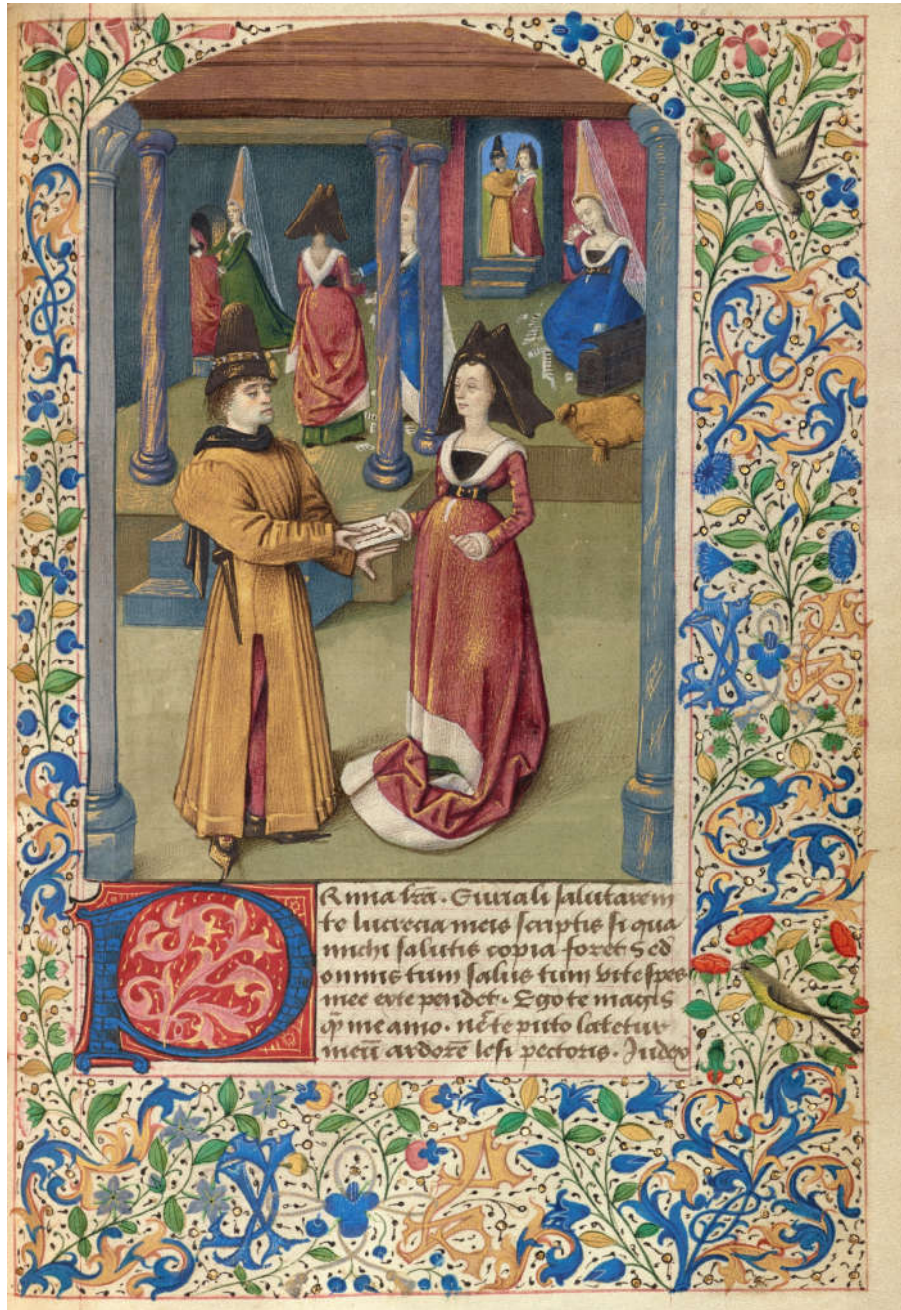 PRima lr̃a. Euriali salutarem
te lucrecia meis scriptis si qua
michi salutis copia foret Sed
omnis tum salus tum vite spes
mee exte pendet. Ego te magis
q̃ me amo. nẽ te puto latetur
meũ ardorẽ lesi pectoris. Judex